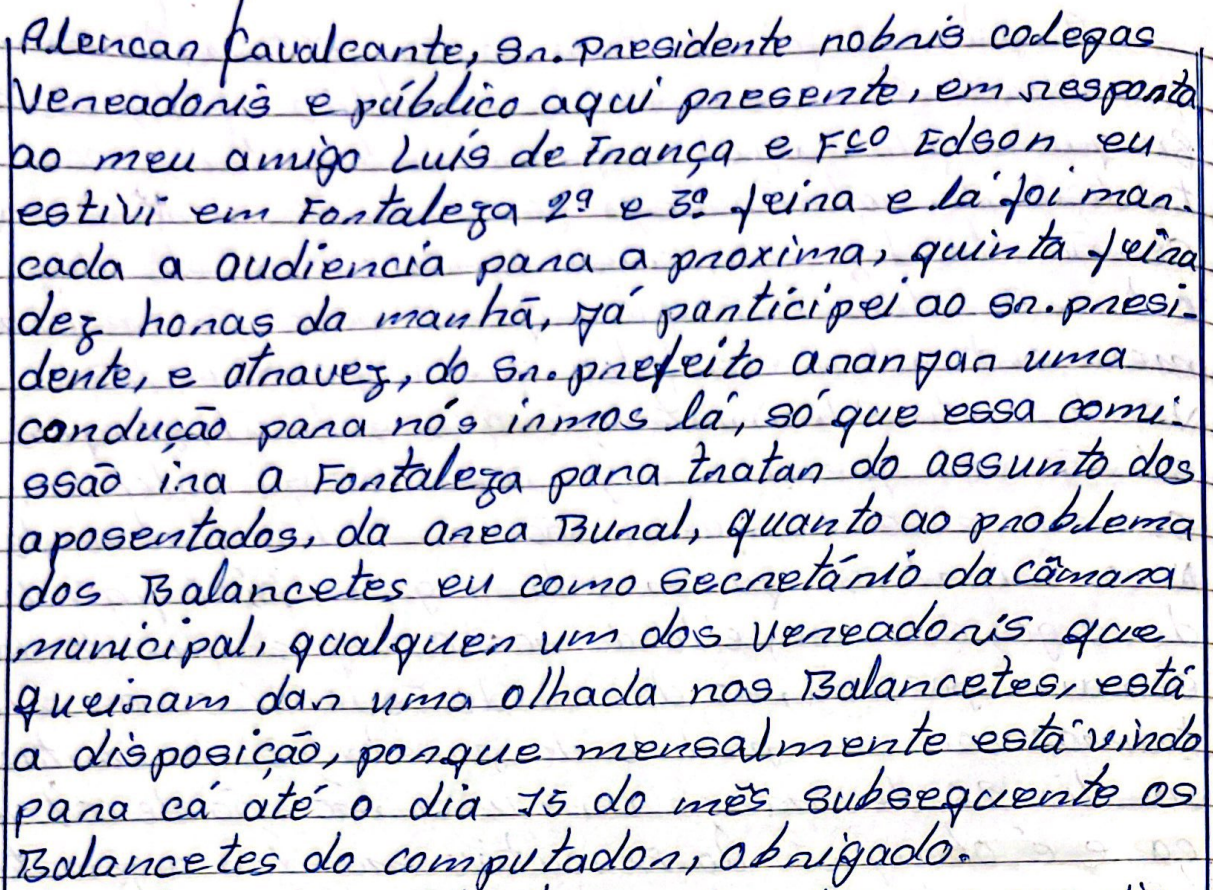 Alencar Cavalcante, sr. presidente nobris colegas
Vereadoris e público aqui presente, em resposta
ao meu amigo Luís de França e Fco Edson eu
estivi em Fortaleza 2ª e 3ª feira e lá foi mar-
cada a audiencia para a proxima, quinta feira
dez horas da manhã, já participei ao sr. presi-
dente, e atravez, do sr. prefeito arranjar uma
condução para nós irmos lá, só que essa comi-
ssão ira a Fortaleza para tratar do assunto dos
aposentados, da area Rural, quanto ao problema
dos Balancetes eu como secretário da câmara
municipal, qualquer um dos vereadoris que
queiram dar uma olhada nos Balancetes, está
a disposição, porque mensalmente está vindo
para cá até o dia 15 do mês subsequente os
Balancetes do computador, obrigado.